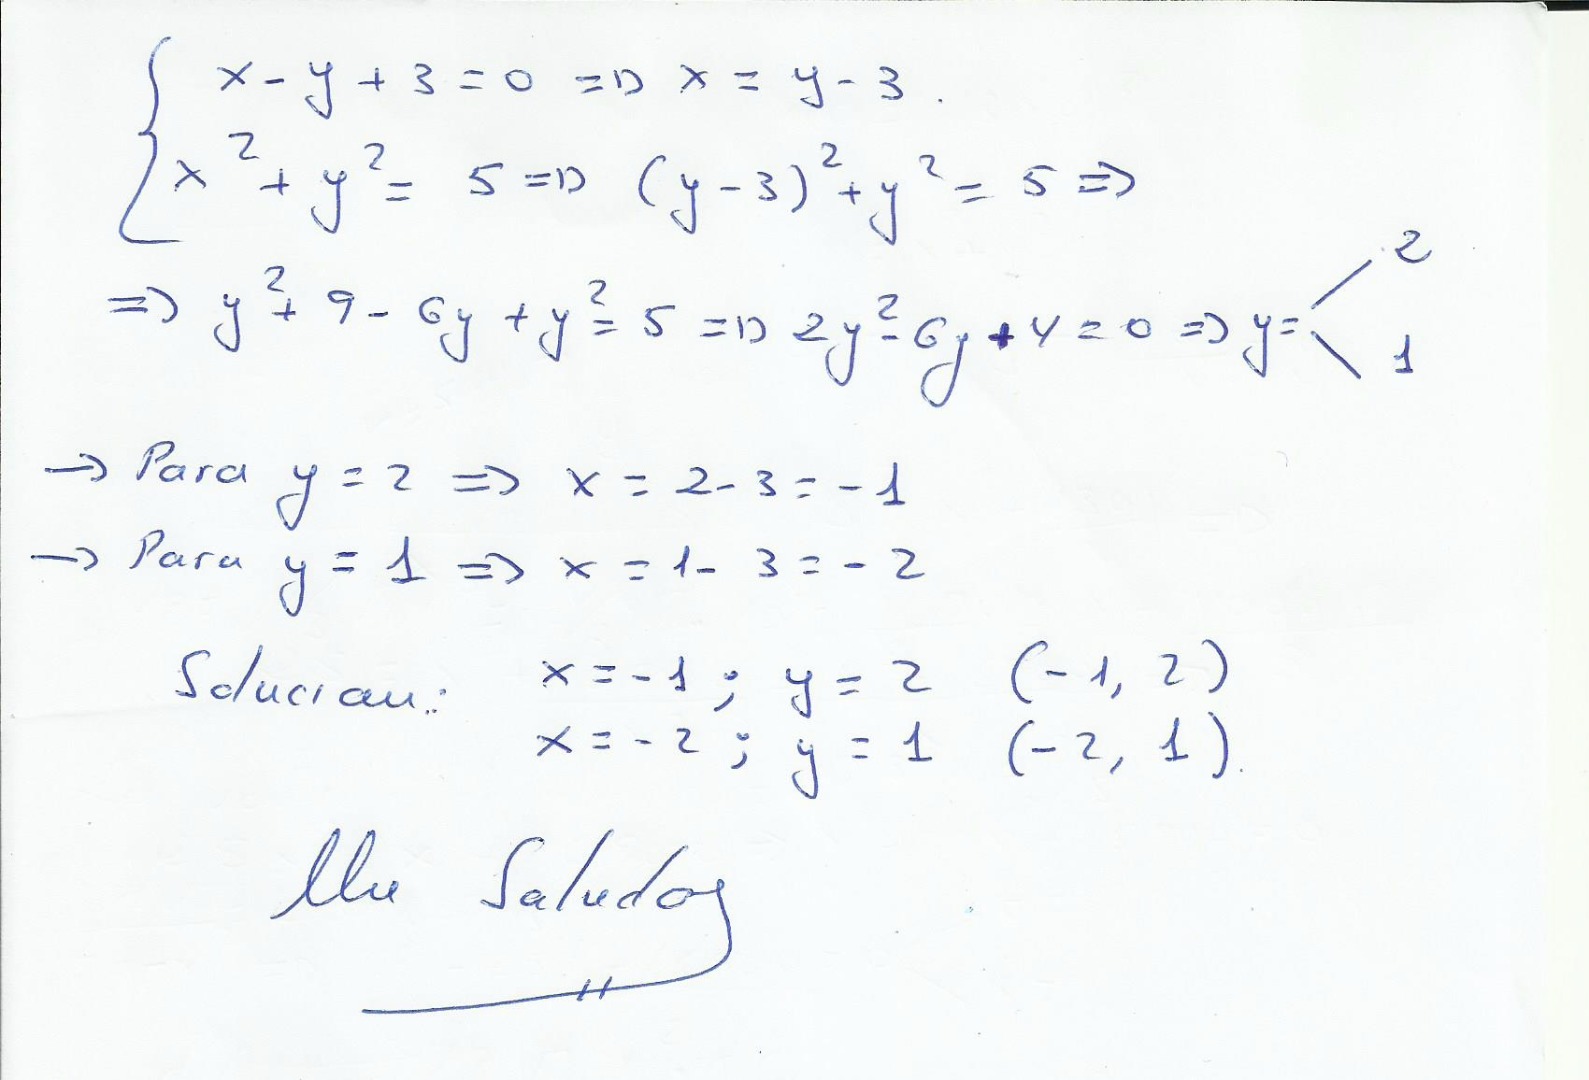 x - y + 3 = 0 => x = y - 3.
x² + y² = 5 => (y - 3)² + y² = 5 =>
=> y² + 9 - 6y + y² = 5 => 2y² - 6y + 4 = 0 => y = 2
1
→ Para y = 2 => x = 2 - 3 = -1
→ Para y = 1 => x = 1 - 3 = -2
Solucion: x = -1 ; y = 2 (-1, 2)
x = -2 ; y = 1 (-2, 1).
Saludos